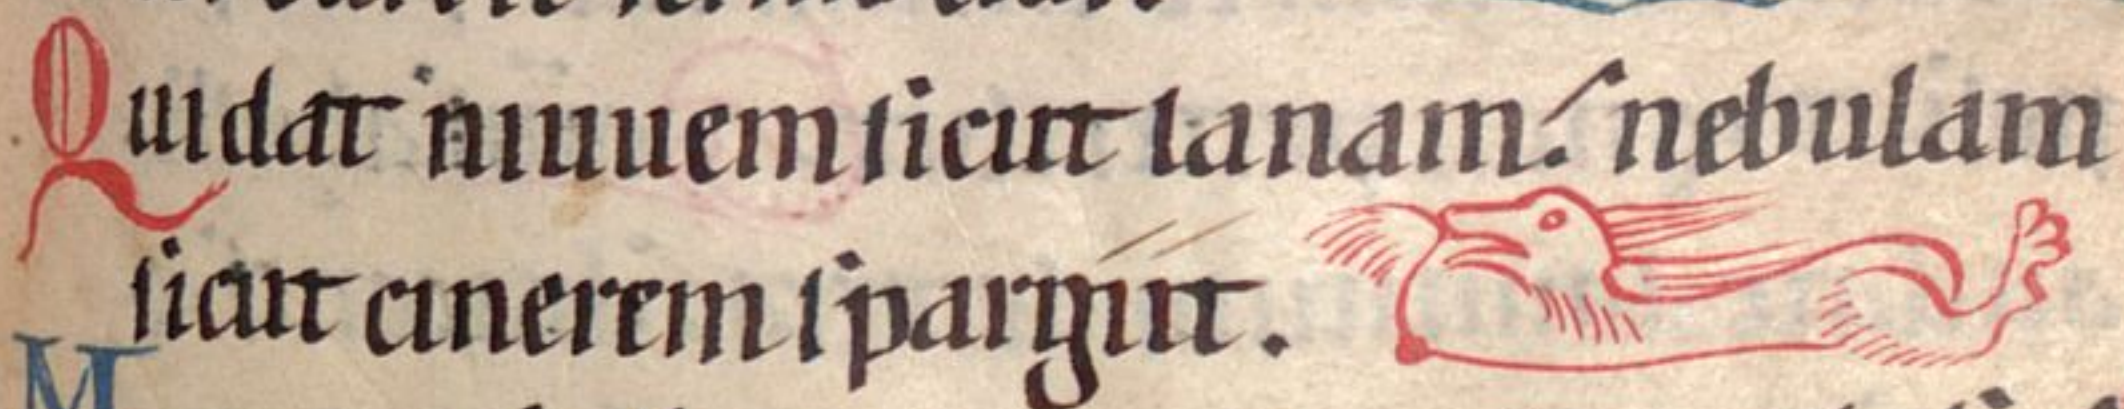 Qui dat niuuem sicut lanam: nebulam
sicut cinerem spargiit.